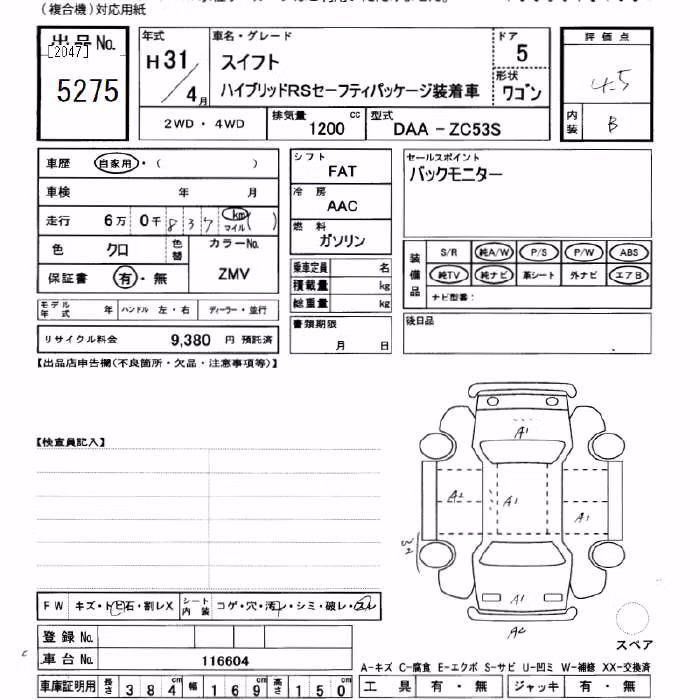 (複合機)対応用紙
出品No.
[2047]
5275
年式
H31/4月
車名・グレード
スイフト
ハイブリッドRSセーフティパッケージ装着車
ドア
5
形状
ワゴン
評価点
4.5
内装
B
2WD・4WD
排気量
1200 cc
型式
DAA-ZC53S
車歴 自家用・( )
車検 年 月
走行 6万 0千 8 3 7 km マイル ( )
色 クロ
色替
カラーNo.
ZMV
保証書 有・無
モデル年式 年 ハンドル 左・右 ディーラー・並行
リサイクル料金 9,380 円 預託済
シフト
FAT
冷房
AAC
燃料
ガソリン
乗車定員 名
積載量 kg
総重量 kg
書類期限
月 日
セールスポイント
バックモニター
装備品
S/R 純A/W P/S P/W ABS
純TV 純ナビ 革シート 外ナビ エアB
ナビ型番:
後日品
【出品店申告欄(不良箇所・欠品・注意事項等)】
【検査員記入】
A1
A2
A1
A1
W2
A1
A2
スペア
FW キズ・トビ石・割レX
シート内装 コゲ・穴・汚レ・シミ・破レ・スレ
登録No.
車台No. 116604
車庫証明用 長さ 384cm 幅 169cm 高さ 150cm
A-キズ C-腐食 E-エクボ S-サビ U-凹ミ W-補修 XX-交換済
工具 有・無 ジャッキ 有・無